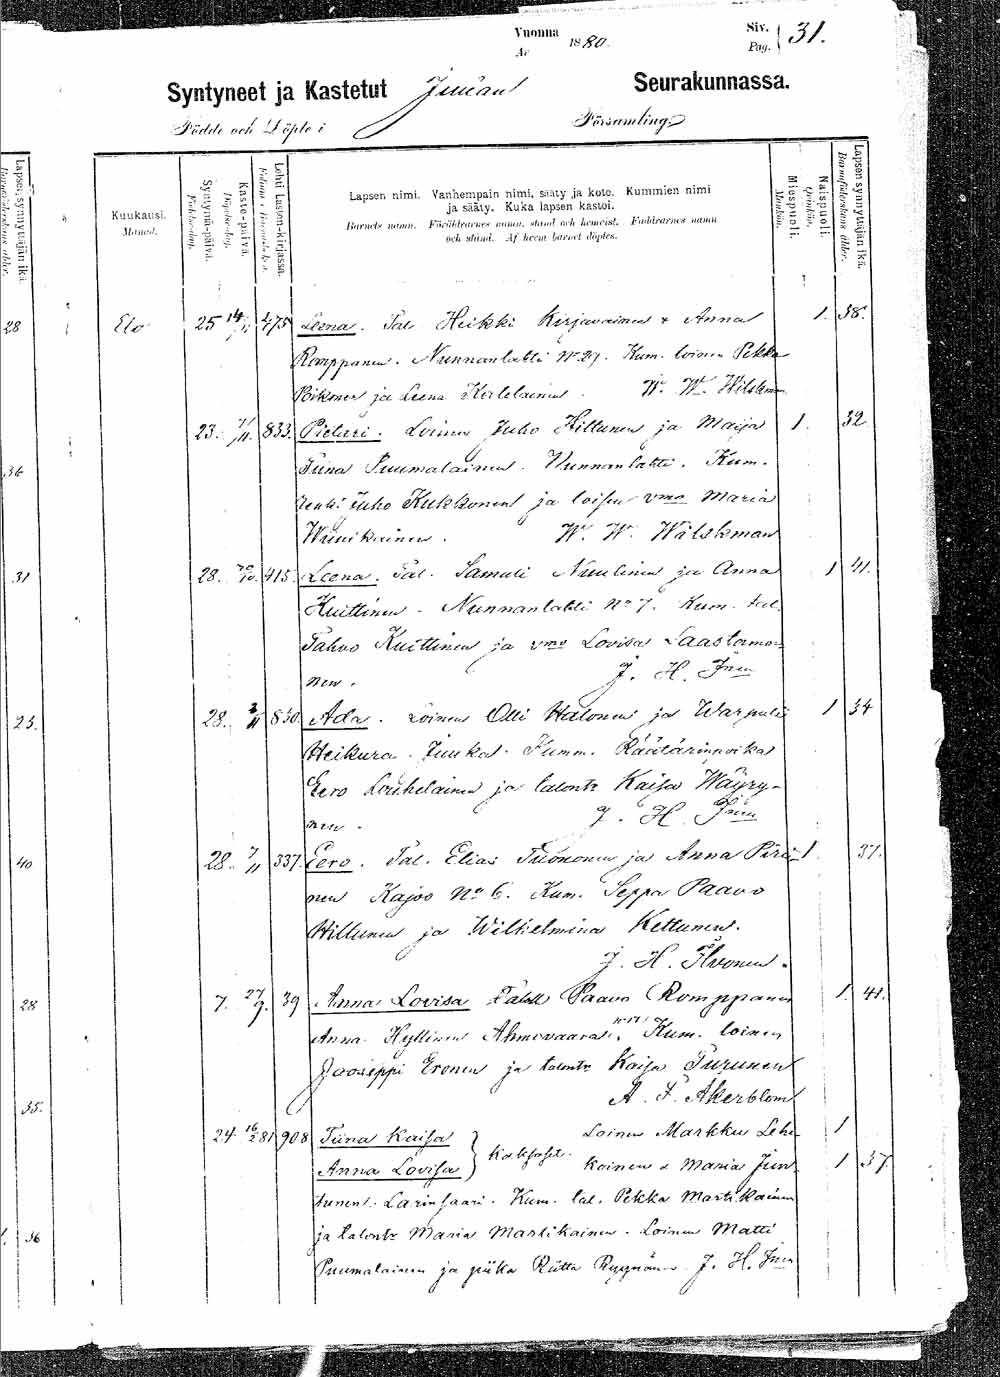 Vuonna 1880. Siv. 31.
År Pag.
Syntyneet ja Kastetut Juuan Seurakunnassa.
Födde och Döpte i Församling
Lapsen synnyttäjän ikä.
Kuukausi.
Månad.
Syntymä-päivä.
Kaste-päivä.
Lehti Lasten-kirjassa.
Lapsen nimi. Vanhempain nimi, sääty ja koto. Kummien nimi
ja sääty. Kuka lapsen kastoi.
Barnets namn. Föräldrarnes namn, stånd och hemvist. Faddrarnes namn
och stånd. Af hvem barnet döptes.
Miespuoli.
Mankön.
Naispuoli.
Qvinkön.
Lapsen synnyttäjän ikä.
28 Elo 25 14/11 475 Leena. Tal. Heikki Kirjavainen & Anna 1. 38.
Romppanen. Nunnanlahti No 29. Kum. loinen Pekka
ja Leena W. W. Wilskman
23. 833. Pietari. Loinen Juho Hiltunen ja Maija 1 32
36 Tiina Puumalainen. Nunnanlahti. Kum.
Juho Kukkonen ja loisen vmo Maria
W. W. Wilskman
31 28. 415. Leena. Tal. Samuli Nuutinen ja Anna 1 41.
Kuittinen. Nunnanlahti No 7. Kum. tal.
Tahvo Kuittinen ja vmo Lovisa Laastamo-
nen. J. H.
23. 28. 830. Ada. Loinen Olli Halonen ja Warpuli 1 34
Heikura. Juuka. Kumm. Räätärinpoika
Eero Louhelainen ja talontr Kaisa Wäyry-
nen. J. H.
40 28. 7/11 337. Eero. Tal. Elias Tuononen ja Anna Piri- 1. 37.
nen Kajoo No 6. Kum. Seppä Paavo
Hiltunen ja Wilhelmina Kettunen.
J. H.
28 7. 27/9. 39 Anna Lovisa Paavo Romppanen 1. 41.
Anna Hyttinen Ahmovaara. Kum. loinen
Jooseppi Eronen ja talontr Kaisa Turunen
35. A. F. Åkerblom
24 16/2 81 908 Tiina Kaisa Loinen Markku Leh- 1
Anna Lovisa } Kaksoset. koinen & Maria Jun- 1 37.
tunen. Larinsaari. Kum. tal. Pekka Martikainen
36 ja talontr Maria Martikainen. Loinen Matti
Puumalainen ja piika Riitta Ryynänen J. H.